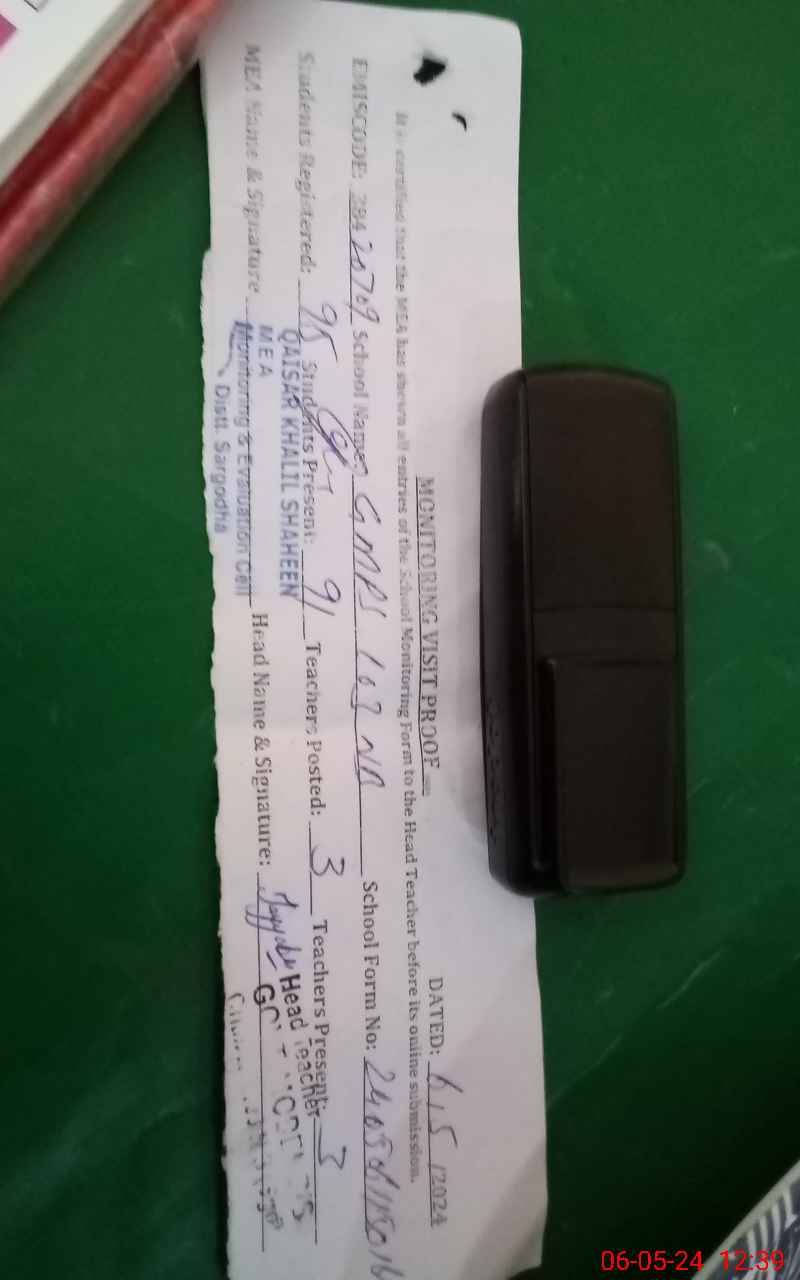 MONITORING VISIT PROOF
DATED: 6/5/2024
It is certified that the MEA has shown all entries of the School Monitoring Form to the Head Teacher before its online submission.
EMISCODE: 38420709 School Name: GMPS 103 NB School Form No:
Students Registered: 95 Students Present: 91 Teachers Posted: 3 Teachers Present: 3
MEA Name & Signature Head Name & Signature:
QAISAR KHALIL SHAHEEN
MEA
Monitoring & Evaluation Cell
Distt. Sargodha
Head Teacher
06-05-24 12:39